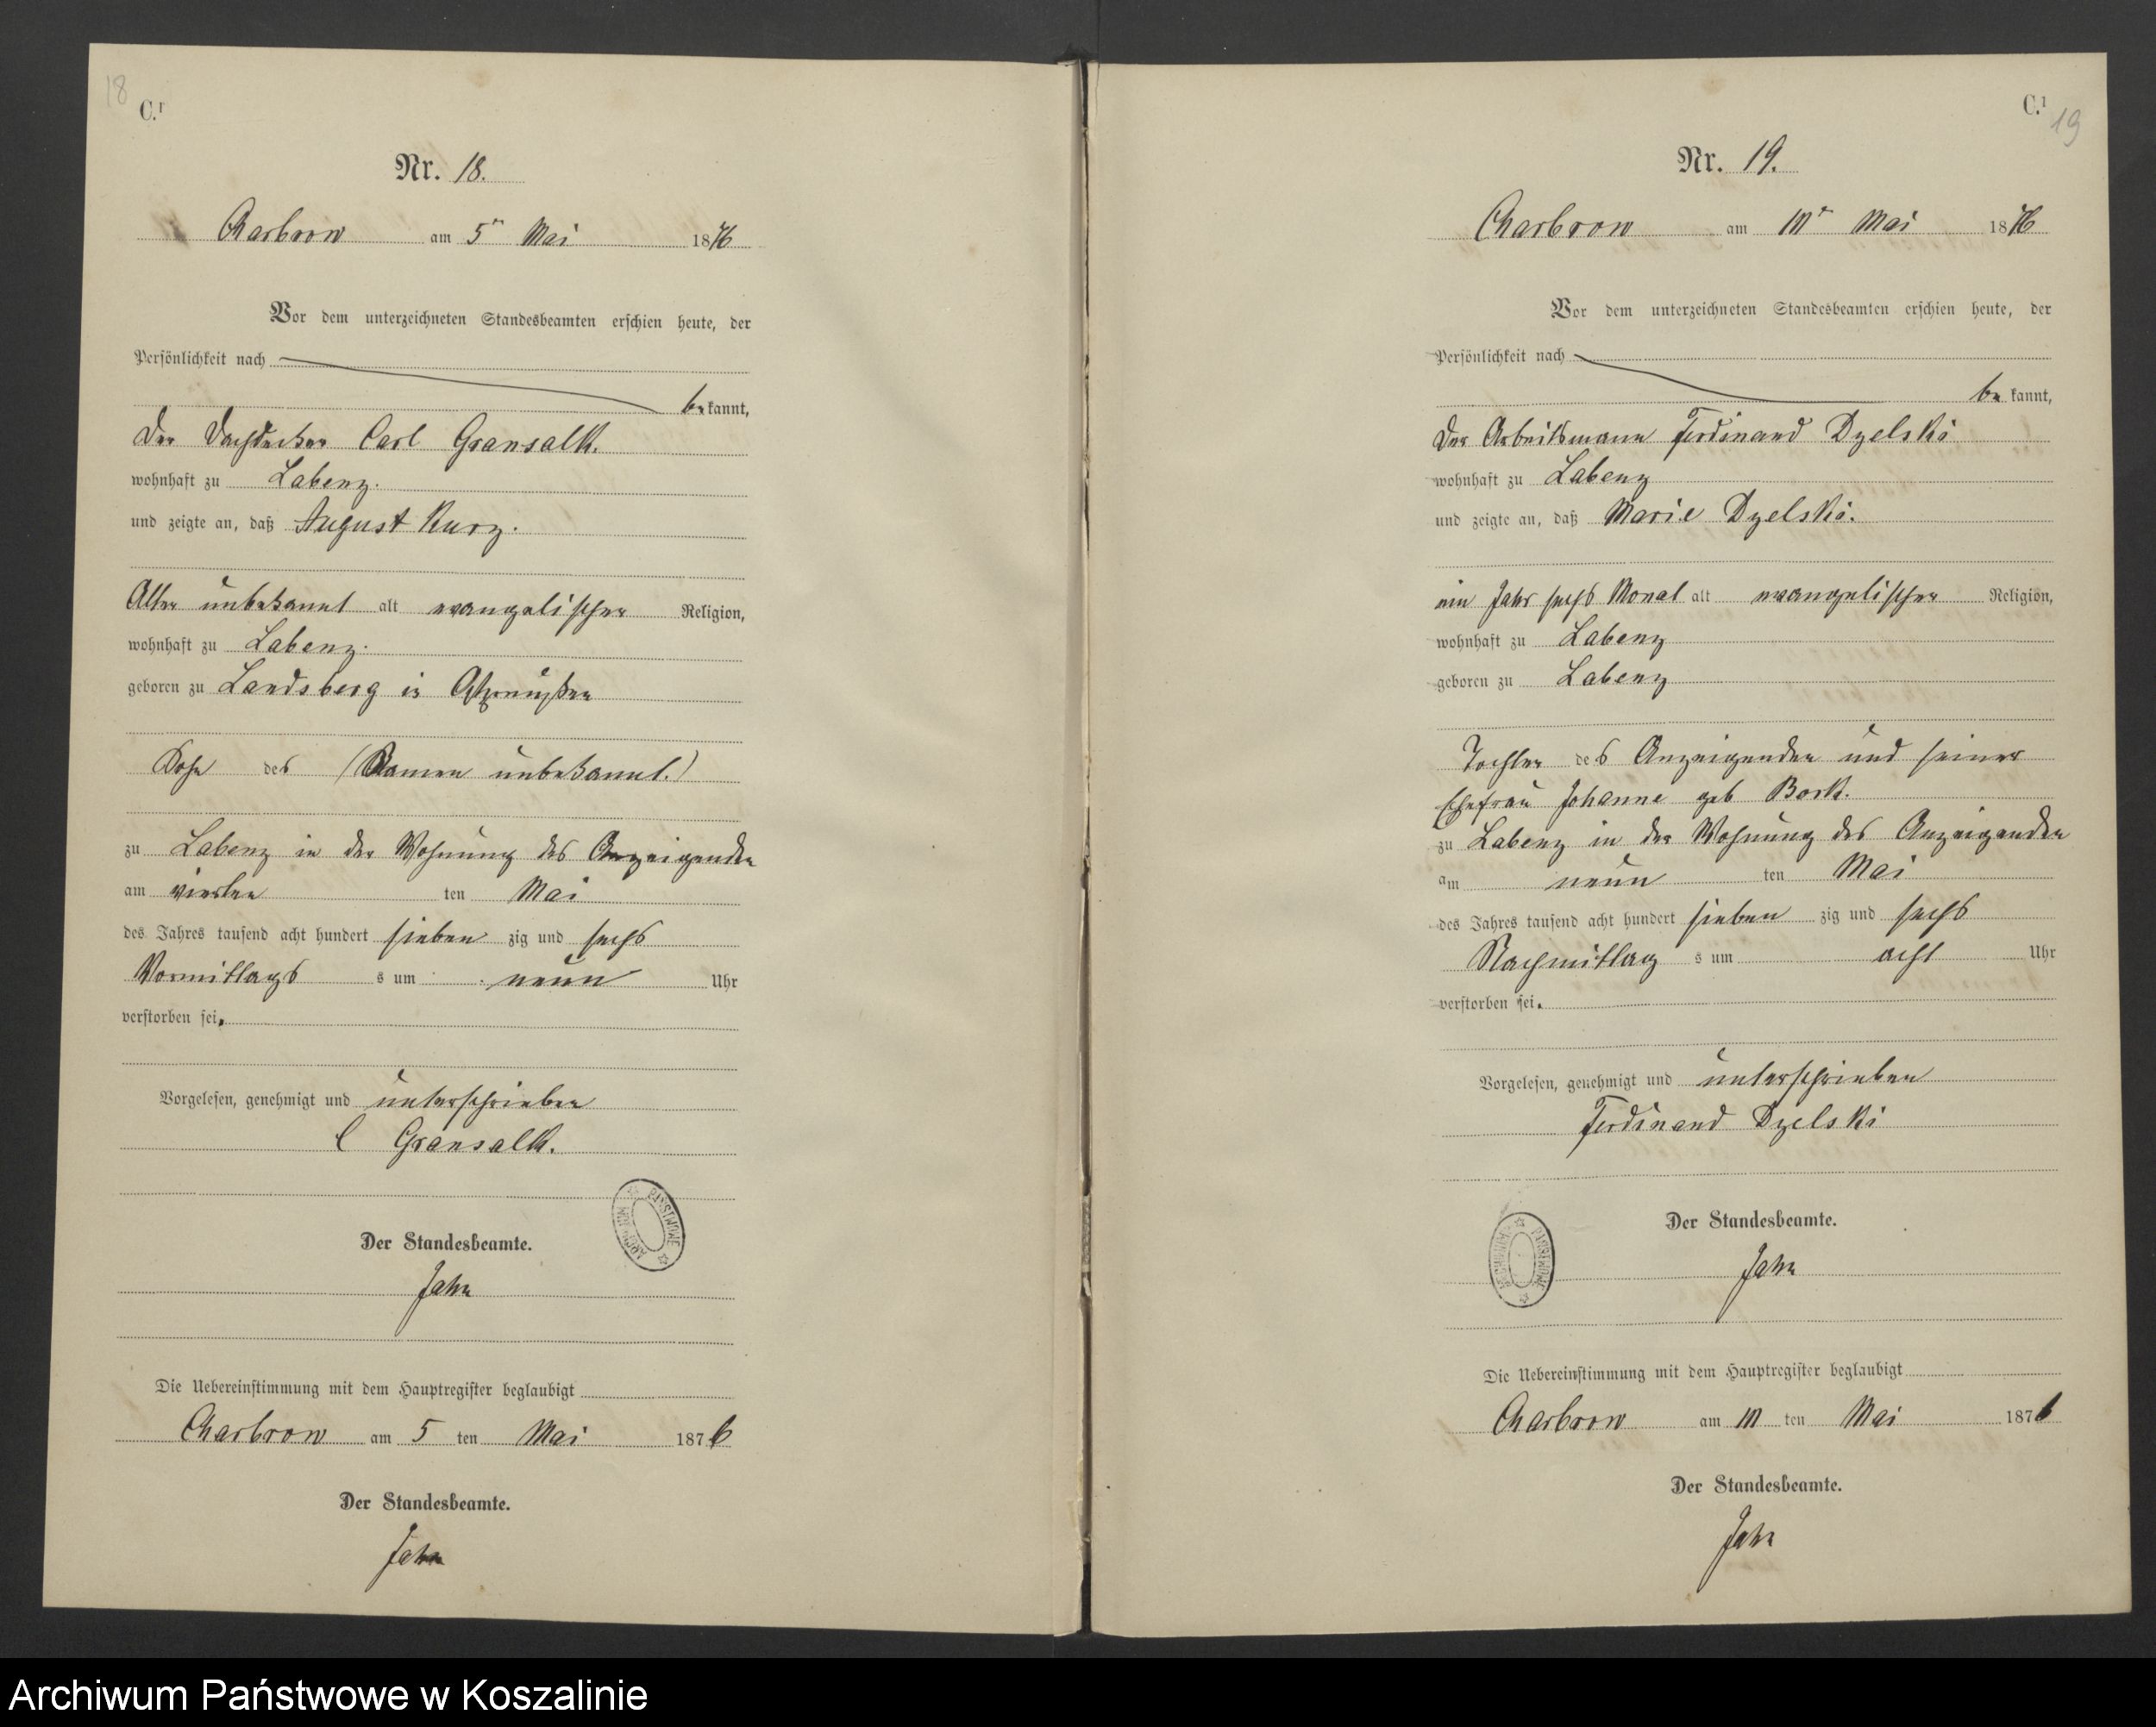 18
C.¹
Nr. 18.
Charbrow am 5ⁿ Mai 1876
Vor dem unterzeichneten Standesbeamten erschien heute, der
Persönlichkeit nach
bekannt,
Der Dachdecker Carl Gransalk.
wohnhaft zu Labenz.
und zeigte an, daß August Kurz.
Alter unbekannt alt evangelischer Religion,
wohnhaft zu Labenz.
geboren zu Landsberg in Ostpreußen
Sohn des (Namen unbekannt.)
zu Labenz in der Wohnung des Anzeigenden
am vierten ten Mai
des Jahres tausend acht hundert sieben zig und sechs
Vormittags s um neun Uhr
verstorben sei.
Vorgelesen, genehmigt und unterschrieben
C Gransalk.
ARCHIWUM PAŃSTWOWE
Der Standesbeamte.
Jahn
Die Uebereinstimmung mit dem Hauptregister beglaubigt
Charbrow am 5 ten Mai 1876
Der Standesbeamte.
Jahn
C.¹
19
Nr. 19.
Charbrow am 10ⁿ Mai 1876
Vor dem unterzeichneten Standesbeamten erschien heute, der
Persönlichkeit nach
bekannt,
Der Arbeitsmann Ferdinand Dzelski
wohnhaft zu Labenz
und zeigte an, daß Marie Dzelski.
ein Jahr sechs Monat alt evangelischer Religion,
wohnhaft zu Labenz
geboren zu Labenz
Tochter des Anzeigenden und seiner
Ehefrau Johanne geb Bork.
zu Labenz in der Wohnung des Anzeigenden
am neun ten Mai
des Jahres tausend acht hundert sieben zig und sechs
Nachmittag s um acht Uhr
verstorben sei.
Vorgelesen, genehmigt und unterschrieben
Ferdinand Dzelski
Der Standesbeamte.
ARCHIWUM PAŃSTWOWE
Jahn
Die Uebereinstimmung mit dem Hauptregister beglaubigt
Charbrow am 10 ten Mai 1876
Der Standesbeamte.
Jahn
Archiwum Państwowe w Koszalinie